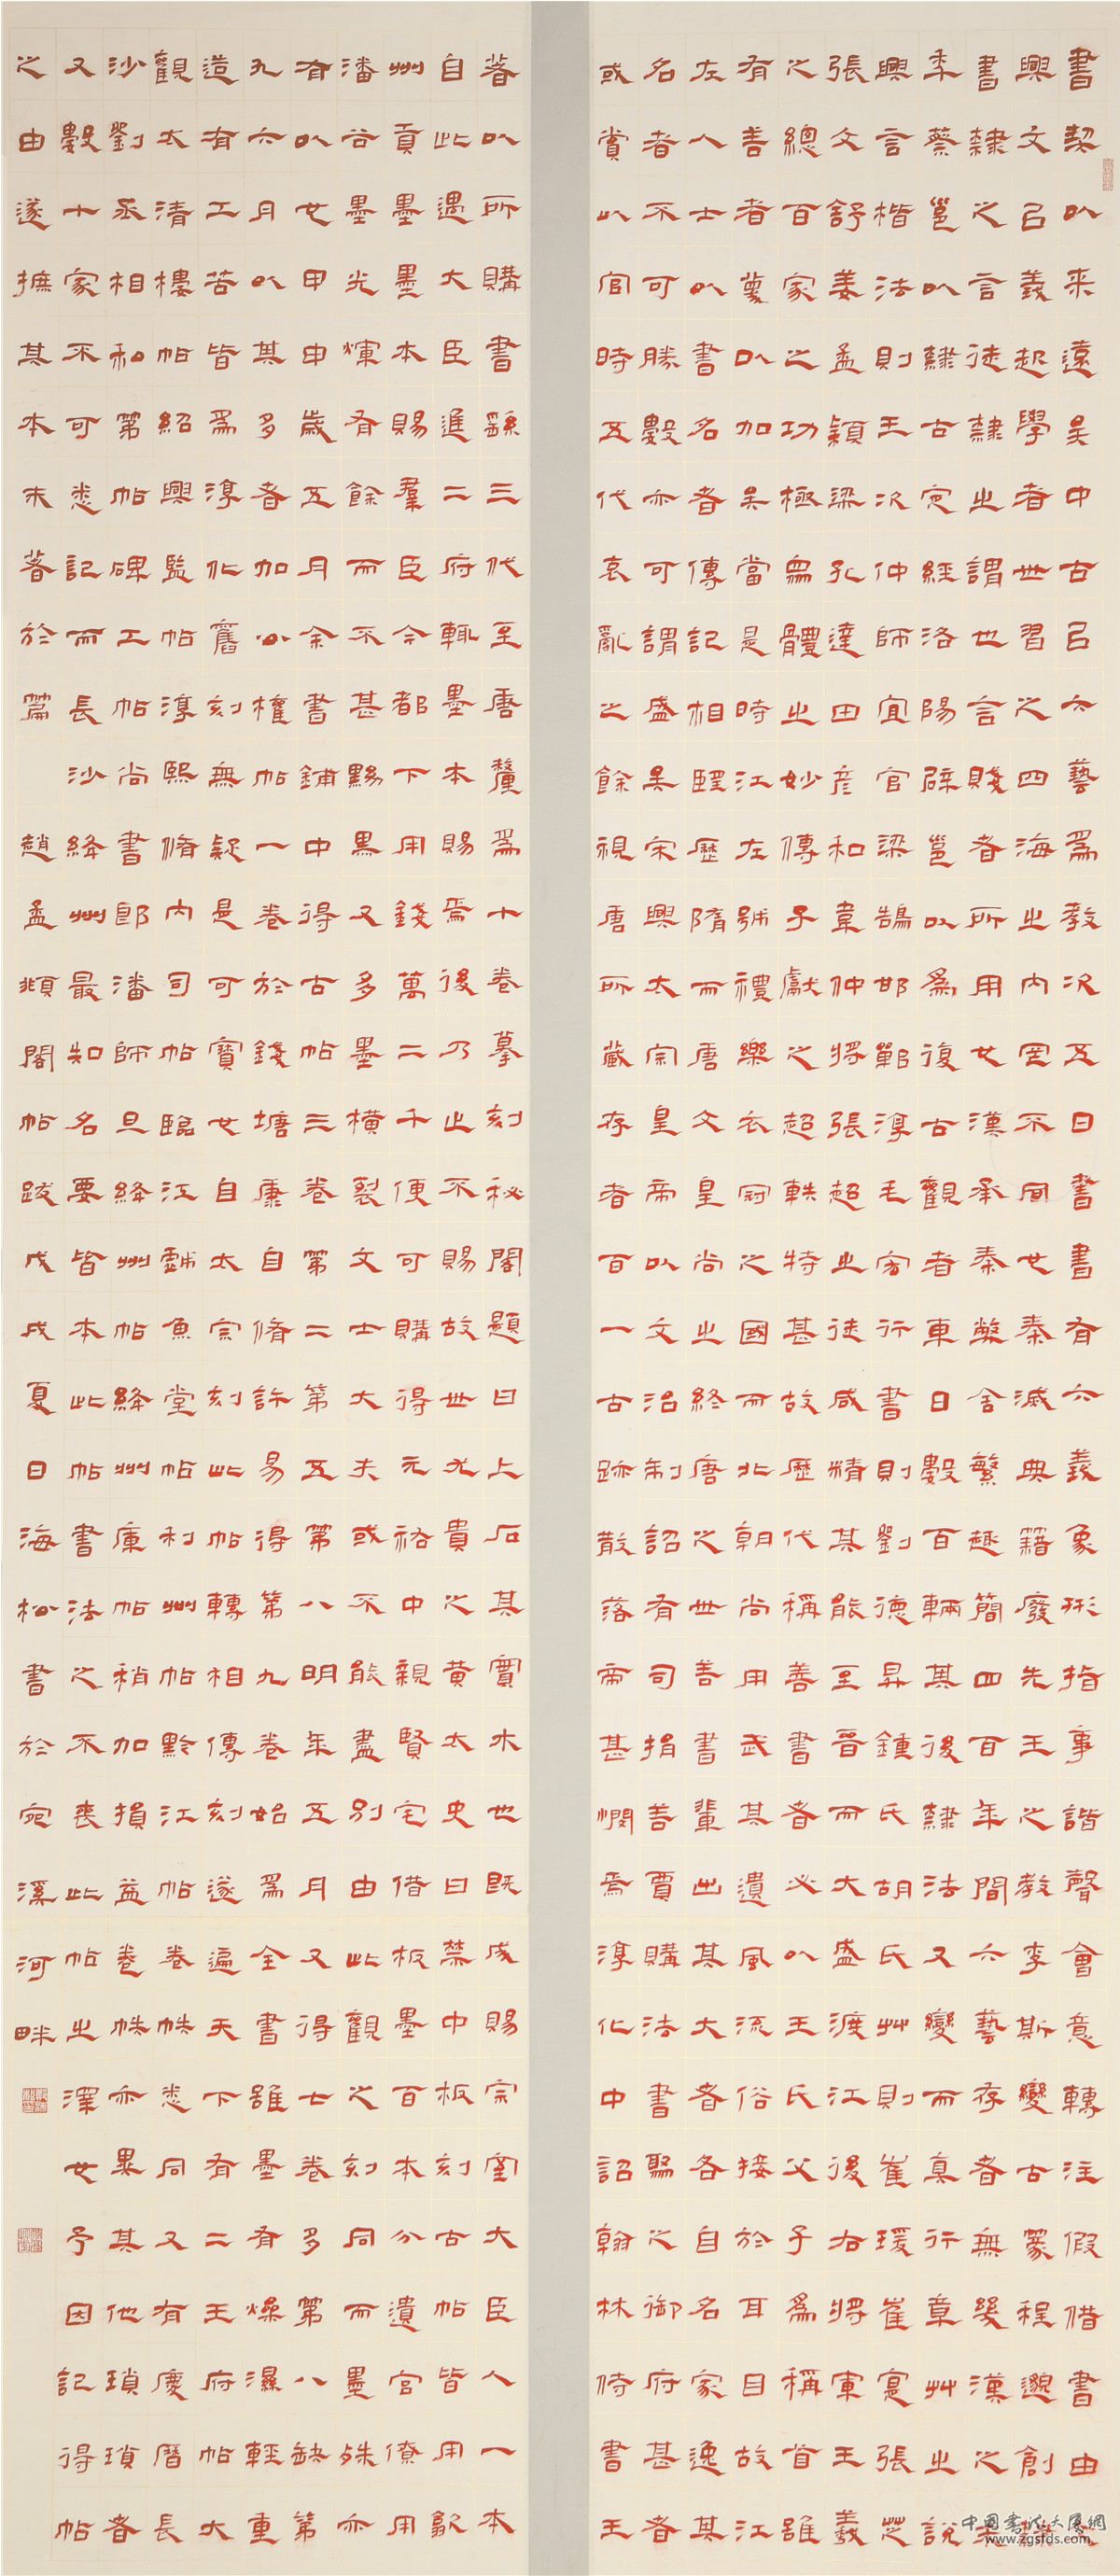 書契以来遠矣中古以六藝爲教次五曰書書有六義象形指事諧聲會意轉注假借書由
興文以義起學者世習之四海之内罔不同也秦滅典籍廢先王之教李斯變古篆程邈創
書隸之言徒隸之謂也言賤者所用也漢承秦弊舍繁趣簡四百年間六藝存者無幾漢之
季蔡邕以隸古定經洛陽辟邕以爲復古觀者車日數百輛其後隸法又變而真行章艸之說
興言楷法則王次仲師宜官梁鵠邯鄲淳毛宏行書則劉德昇鍾氏胡氏艸則崔瑗崔寔張芝
張文舒姜孟穎梁孔達田彦和韋仲將張超之徒咸精其能至晉而大盛渡江後右將軍王羲
之總百家之功極衆體之妙傳子獻之超軼特甚故歷代稱善書者必以王氏父子爲稱首雖
有善者蔑以加矣當是時江左號禮樂衣冠之國而北朝尚用武其遺風流俗接於耳目故江
左人士以書名者傳記相望歷隋而唐文皇尚之終唐之世善書輩出其大者各自名家逸其
名者不可勝數亦可謂盛矣宋興太宗皇帝以文治制詔有司捐善賈購法書聚之御府甚者
或賞以官時五代哀亂之餘視唐所藏存者百一古跡散落帝甚憫焉淳化中詔翰林侍書王
著以所購書繇三代至唐釐爲十卷摹刻秘閣題曰上石其實木也既成賜宗室大臣人一本
自此遇大臣進二府輒墨本賜焉後乃止不賜故世尤貴之黄太史曰禁中板刻古帖皆用歙
州貢墨墨本賜羣臣今都下用錢萬二千便可購得元祐中親賢宅借板墨百本分遺宮僚用
潘谷墨光輝有餘而不甚黟黑又多墨橫裂文士大夫或不能盡別由此觀之刻同而墨殊亦
有以也甲申歲五月余書鋪中得古帖三卷第二第五第八明年五月又得七卷多第八缺第
九六月以其多者加公權帖一卷於錢塘康自脩許易得第九卷始爲全書雖有墨燥濕輕重
造有工苦皆爲淳化舊刻無疑是可寶也自太宗刻此帖轉相傳刻遂遍天下有二王府帖大
觀太清樓帖紹興監帖淳熙脩内司帖臨江戲魚堂帖利州帖黔江帖卷帙悉同又有慶曆長
沙劉丞相和第帖碑工帖尚書郎潘師旦絳州帖絳州庫帖稍加損益卷帙亦異其他瑣瑣者
又數十家不可悉記而長沙絳州最知名要皆本此帖書法之不喪此帖之澤也予因記得帖
之由遂摭其本末著於篇 趙孟頫閣帖跋戊戌夏日海松書於宛溪河畔
中国书法大厦網
www.zgsfds.com